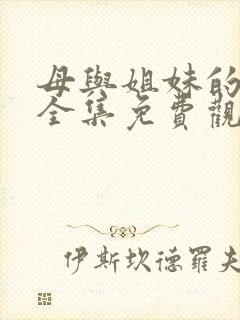 母與姐妹的
全集免費觀
伊斯坎德羅夫